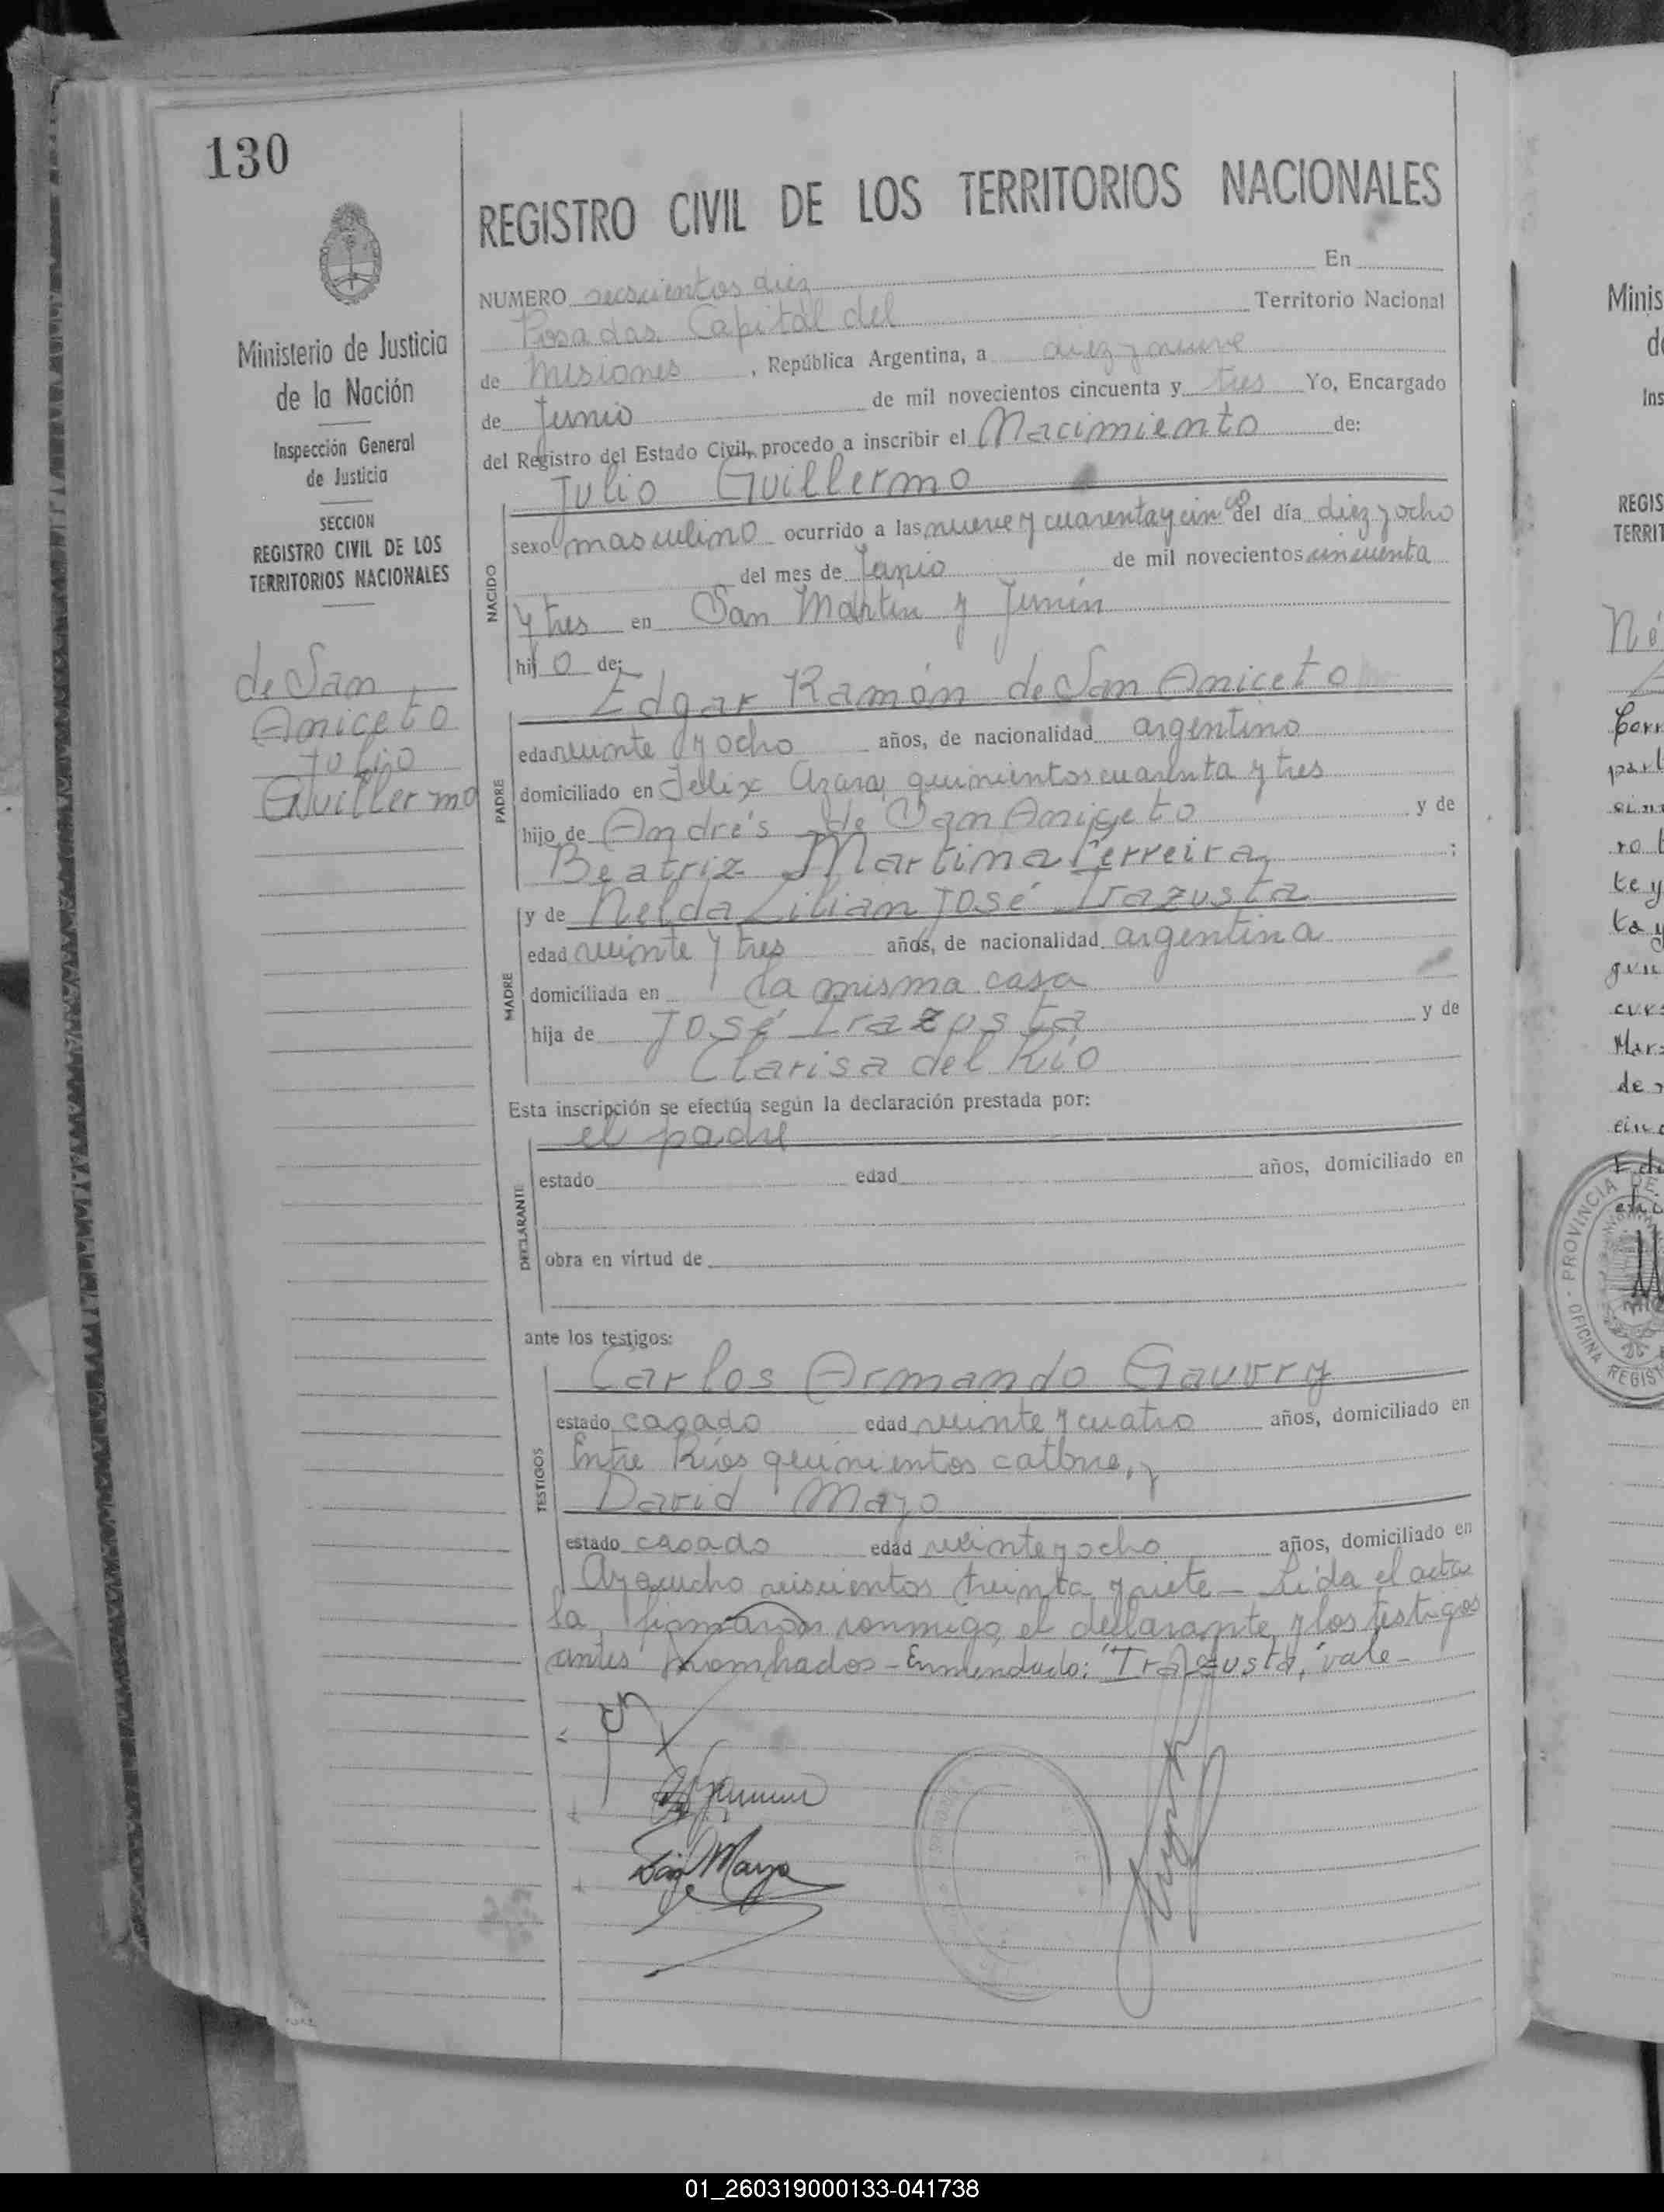 130
REGISTRO CIVIL DE LOS TERRITORIOS NACIONALES
Ministerio de Justicia
de la Nación
Inspección General
de Justicia
SECCION
REGISTRO CIVIL DE LOS
TERRITORIOS NACIONALES
de San
Aniceto
Julio
Guillermo
NUMERO seiscientos diez En
Posadas, Capital del Territorio Nacional
de Misiones, República Argentina, a diez y nueve
de Junio de mil novecientos cincuenta y tres Yo, Encargado
del Registro del Estado Civil, procedo a inscribir el Nacimiento de:
Julio Guillermo
NACIDO
sexo masculino ocurrido a las nueve y cuarenta y cinco del día diez y ocho
del mes de Junio de mil novecientos cincuenta
y tres en San Martín y Junín
hijo de:
Edgar Ramón de San Aniceto
PADRE
edad veinte y ocho años, de nacionalidad argentino
domiciliado en Felix Azara, quinientos cuarenta y tres
hijo de Andrés de San Aniceto y de
Beatriz Martina Ferreira;
y de Nelda Lilian José Irazusta
MADRE
edad veinte y tres años, de nacionalidad argentina
domiciliada en la misma casa
hija de José Irazusta y de
Clarisa del Río
Esta inscripción se efectúa según la declaración prestada por:
el padre
DECLARANTE
estado edad años, domiciliado en
obra en virtud de
ante los testigos:
Carlos Armando Gauvry
TESTIGOS
estado casado edad veinte y cuatro años, domiciliado en
Entre Ríos quinientos catorce, y
David Mayo
estado casado edad veinte y ocho años, domiciliado en
Ayacucho seiscientos treinta y siete - Leída el acta
la firmaron conmigo, el declarante y los testigos
antes nombrados - Enmendado: "Irazusta", vale -
Mayo
Minis
Ins
REGIS
TERRIT
PROVINCIA DE
OFICINA REGIS
01_260319000133-041738